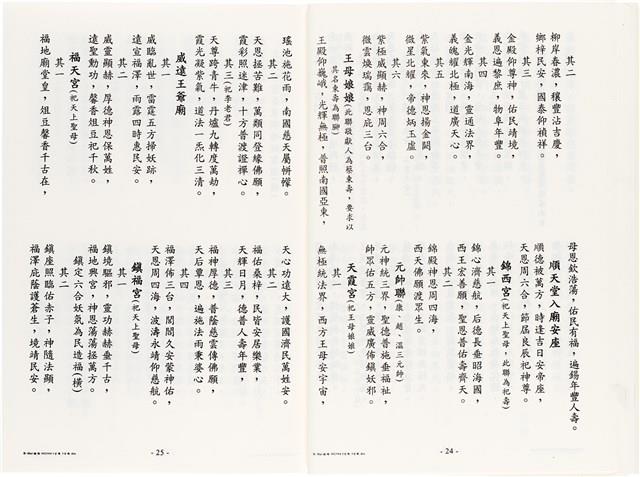 其二
柳岸春濃，穰豐沾吉慶，
鄉梓民安，國泰仰禎祥。
其三
金殿仰尊神，佑民靖境，
義恩遍黎庶，物阜年豐。
其四
金光輝南海，靈通法界，
義魄耀北極，道廣天心。
其五
紫氣東來，神恩揚金闕，
微星北耀，帝德炳玉虛。
其六
紫極威顯赫，神周六合，
微雲煥瑞靄，恩庇三台。
王母娘娘(此聯敬獻人為蔡東壽，要求以
其名東壽為聯腳)
王殿仰巍峨，光輝無極，普照南國亞東，
母恩欽浩蕩，佑民有福，遍錫年豐人壽。
順天堂入廟安座
順德被萬方，時逢吉日安帝座，
天恩周六合，節屆良辰祀神尊。
錦西宮(祀天上聖母，此聯為祀壽)
其一
錦心濟慈航，后德長垂昭海國，
西王宏善願，聖恩普佑壽齊天。
其二
錦殿神恩周四海，
西天佛願渡眾生。
元帥聯(康、趙、溫三元帥)
元神統三界，聖德普施垂福祉，
帥眾佑五方，靈威廣佈鎮妖邪。
天霞宮(祀王母娘娘)
其一
無極統法界，西方王母安宇宙，
- 24 -
瑤池施花雨，南國慈天屬帡幪。
其二
天恩拯苦難，萬類同登緣佛願，
霞彩照迷津，十方普渡證禪心。
其三(祀李老君)
天尊跨青牛，丹爐九轉度萬劫，
霞光凝紫氣，道法一炁化三清。
威遠王爺廟
其一
威臨亂世，雷霆五方掃妖跡，
遠宣福澤，雨露四時惠民安。
其二
威靈顯赫，厚德神恩保萬姓，
遠聖勳功，馨香俎豆祀千秋。
福天宮(祀天上聖母)
其一
福地廟堂皇，俎豆馨香千古在，
天心功遠大，護國濟民萬姓安。
其二
福佑桑梓，民皆安居樂業，
天輝日月，德普人壽年豐，
其三
福神厚德，普蔭慈雲傳佛願，
天后覃恩，遍施法雨秉婆心。
其四
福澤佈三台，閭閻久安蒙神佑，
天恩周四海，波濤永靖仰慈航。
鎮福宮(祀天上聖母)
其一
鎮境驅邪，靈功赫赫垂千古，
福地興宮，神恩蕩蕩拯萬方。
鎮定六合妖氛為民造福(橫)
其二
鎮座照臨佑赤子，神隨法顯，
福澤庇蔭護蒼生，境靖民安。
- 25 -